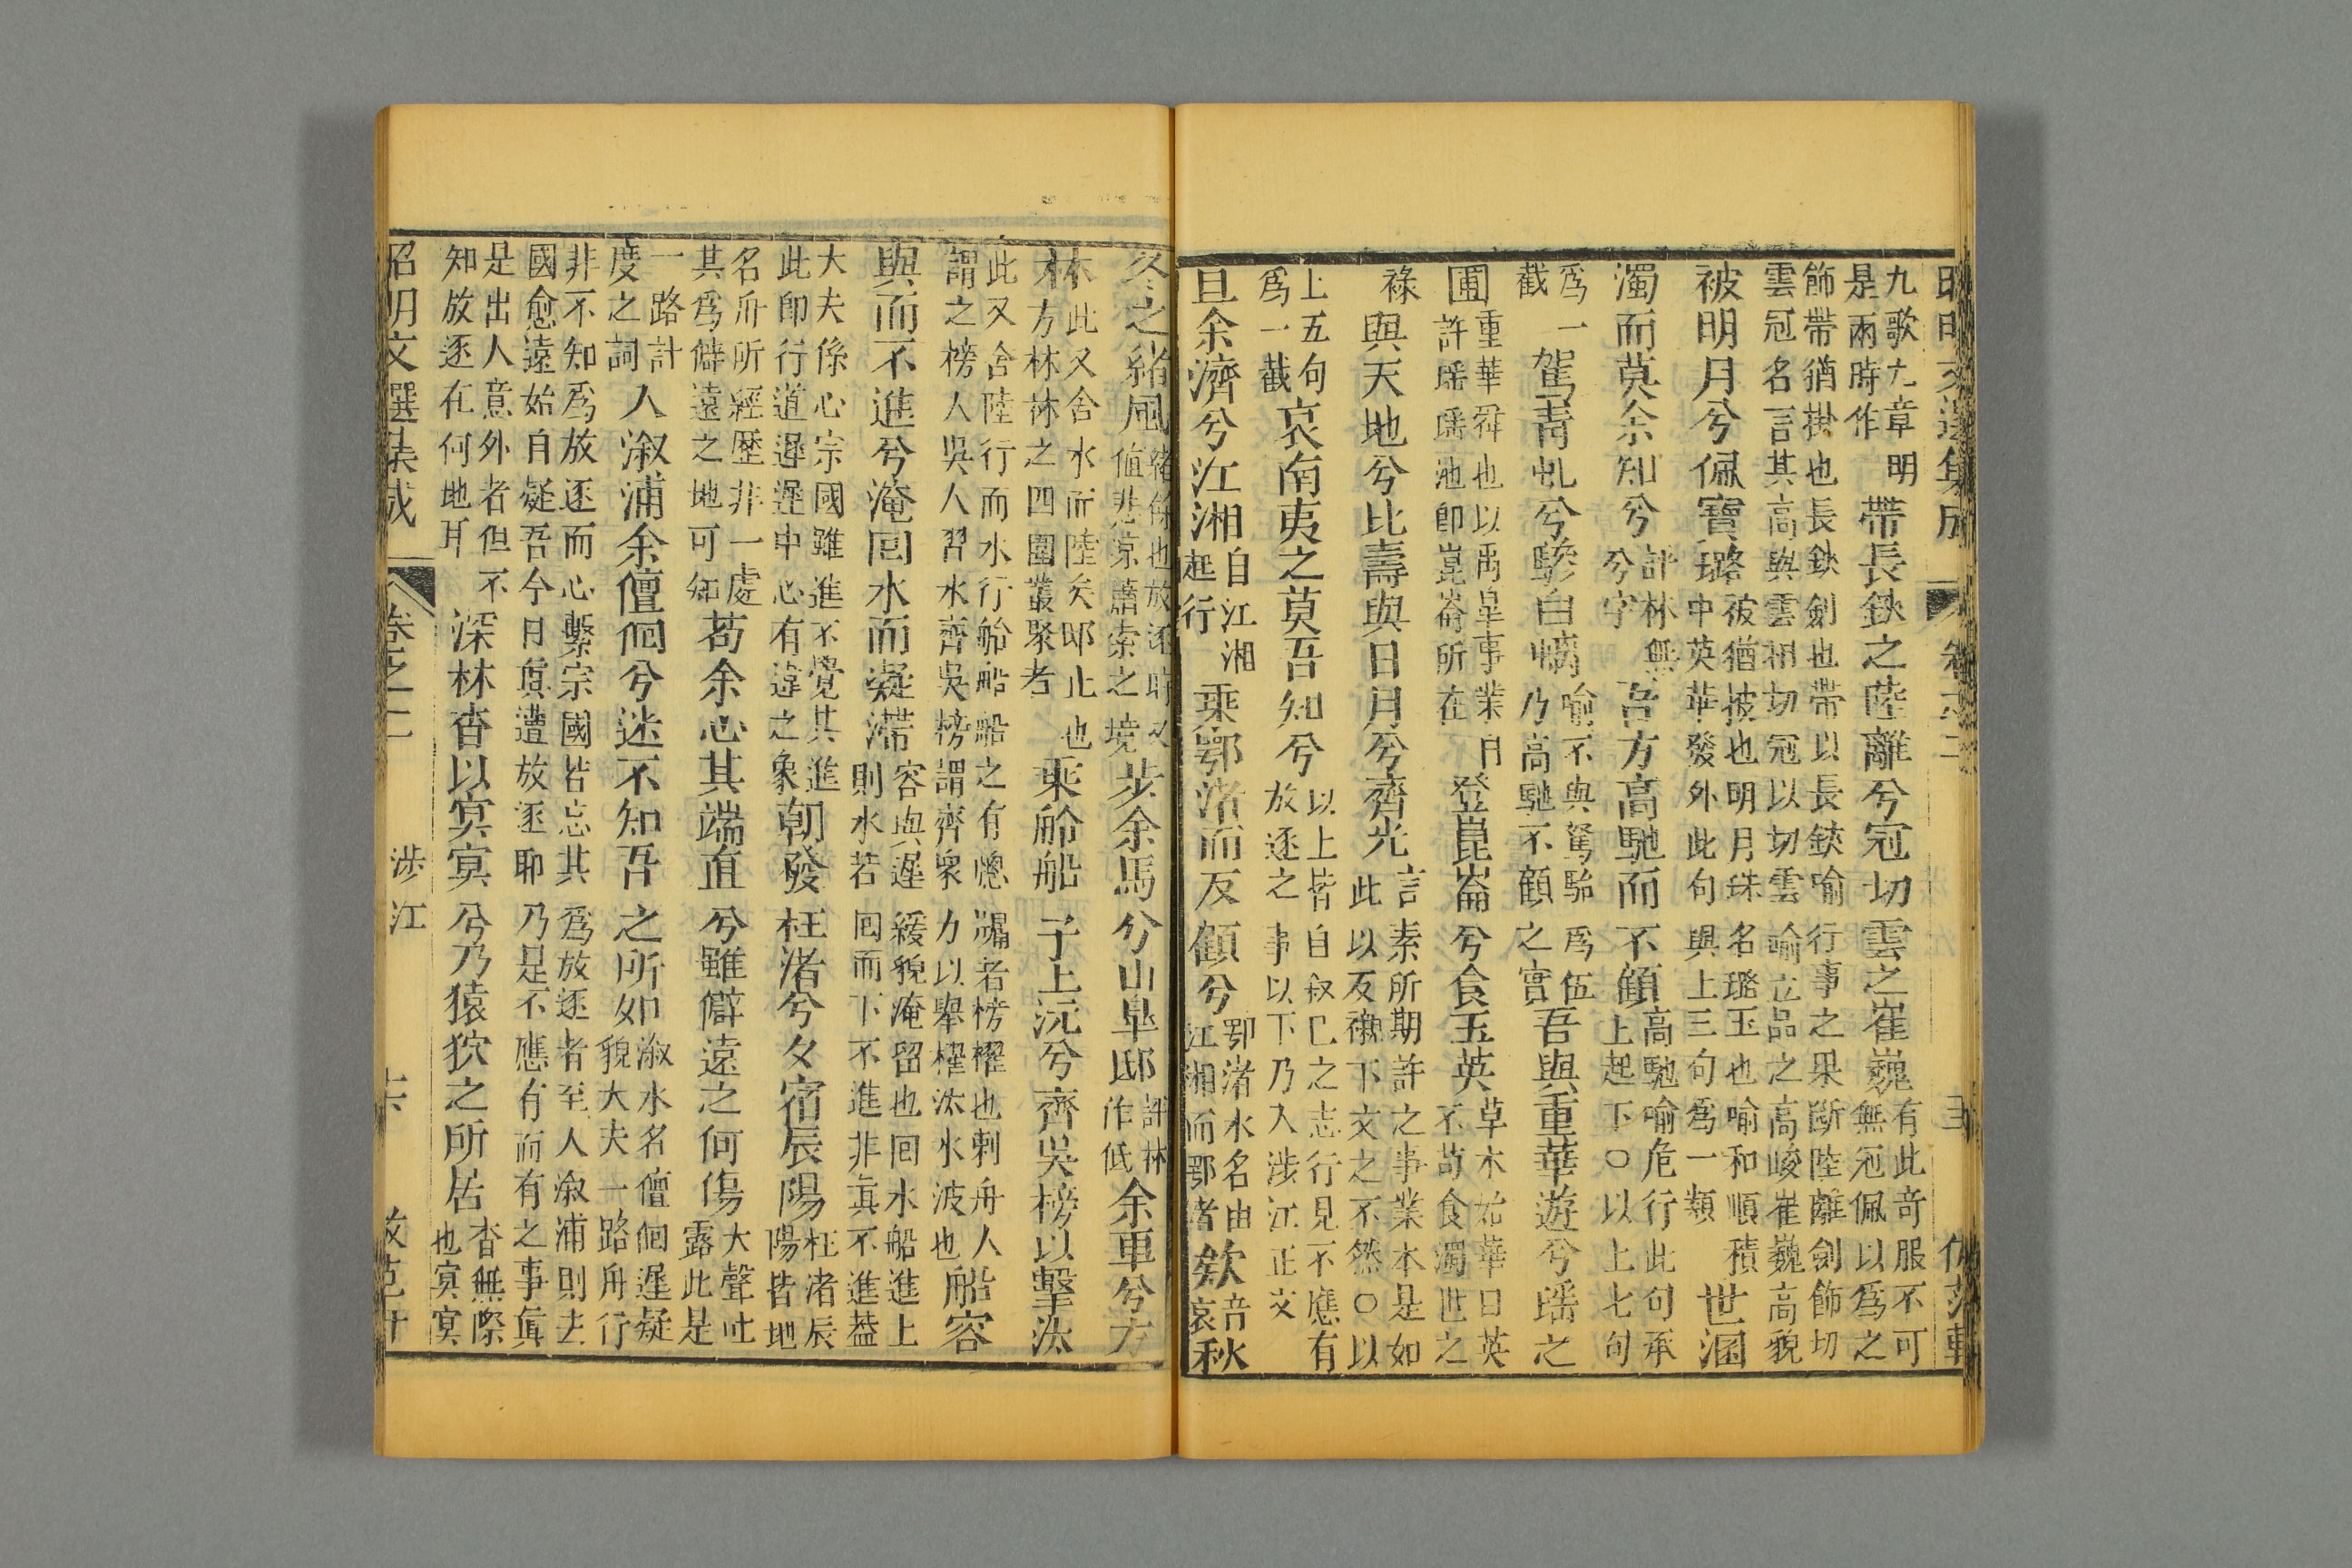 九歌九章明
是兩時作
帶長鋏之陸離兮冠切雲之崔巍
有此竒服不可
無冠佩以爲之
飾帶猶掛也長鋏劍也帶以長鋏喻行事之果斷陸離劍飾切
雲冠名言其高與雲相切冠以切雲喻立品之高峻崔巍高貌
被明月兮佩寶璐
被猶披也明月珠名璐玉也喻和順積
中英華發外此句與上三句爲一類
世溷
濁而莫余知兮
評林無
兮字
吾方高馳而不顧
高馳喻危行此句承
上起下○以上七句
爲一
截
駕青虬兮驂白螭
喻不與駑駘爲伍
乃高馳不顧之實
吾與重華遊兮瑤之
圃
重華舜也以禹皐事業自
許瑤瑤池卽崑崙所在
登崑崙兮食玉英
草木始華曰英
不苟食濁世之
祿
與天地兮比壽與日月兮齊光
言素所期許之事業本是如
此以反襯下文之不然○以
上五句
爲一截
哀南夷之莫吾知兮
以上皆自叙己之志行見不應有
放逐之事以下乃入涉江正文
旦余濟兮江湘
自江湘
起行
乘鄂渚而反顧兮
鄂渚水名由
江湘而鄂渚
欸
音
哀
秋
冬之緒風
緒餘也放逐時又
值悲涼蕭索之境
步余馬兮山皐邸
評林
作低
余車兮方
林
此又舍水而陸矣邸止也
方林林之四圍叢聚者
乘舲船子上沅兮齊吳榜以擊汰
此又舍陸行而水行舲船船之有牕牖者榜櫂也刺舟人
謂之榜人吳人習水齊吳榜謂齊衆力以舉櫂汰水波也
船容
與而不進兮淹回水而凝滯
容與遲緩貌淹留也回水船進上
則水若回而下不進非眞不進葢
大夫係心宗國雖進不覺其進
此卽行道遲遲中心有違之象
朝發枉渚兮夕宿辰陽
枉渚辰
陽皆地
名舟所經歷非一處
其爲僻遠之地可知
苟余心其端直兮雖僻遠之何傷
大聲叱
露此是
一路計
度之詞
入溆浦余儃佪兮迷不知吾之所如
溆水名儃佪遲疑
貌大夫一路舟行
非不知爲放逐而心繫宗國皆忘其爲放逐者至人溆浦則去
國愈遠始自疑吾今日眞遭放逐耶乃是不應有而有之事眞
是出人意外者但不
知放逐在何地耳
深林杳以冥冥兮乃猿狖之所居
杳無際
也冥冥
昭明文選集成
卷之二
涉江